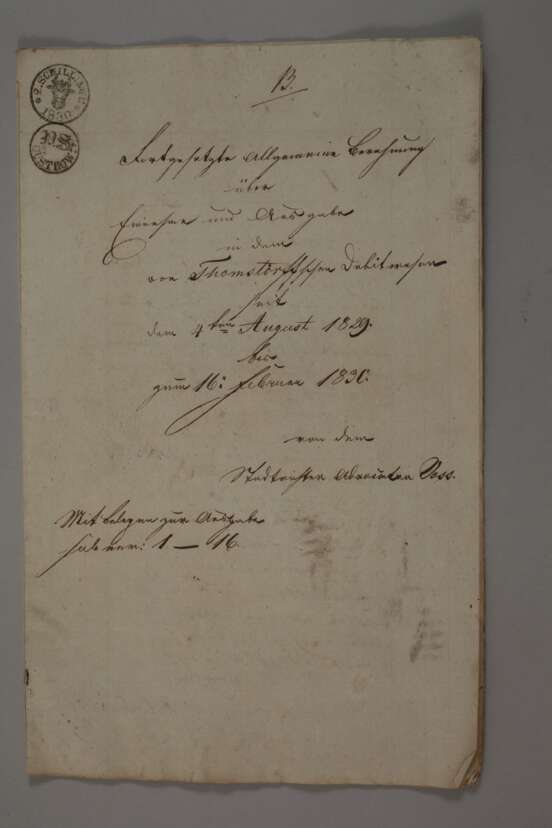 * 2. SCHILLING * 1830
B.
Fortgesetzte Allgemeine Berechnung
über
Einnahme und Ausgabe
in dem
von Thomstorffschen Debitwesen
seit
dem 4ten August 1829.
bis
zum 16: Februar 1830.
von dem
Stadtrichter Advocaten Voss.
Mit Belegen zur Ausgabe
sub nrr: 1 — 16.